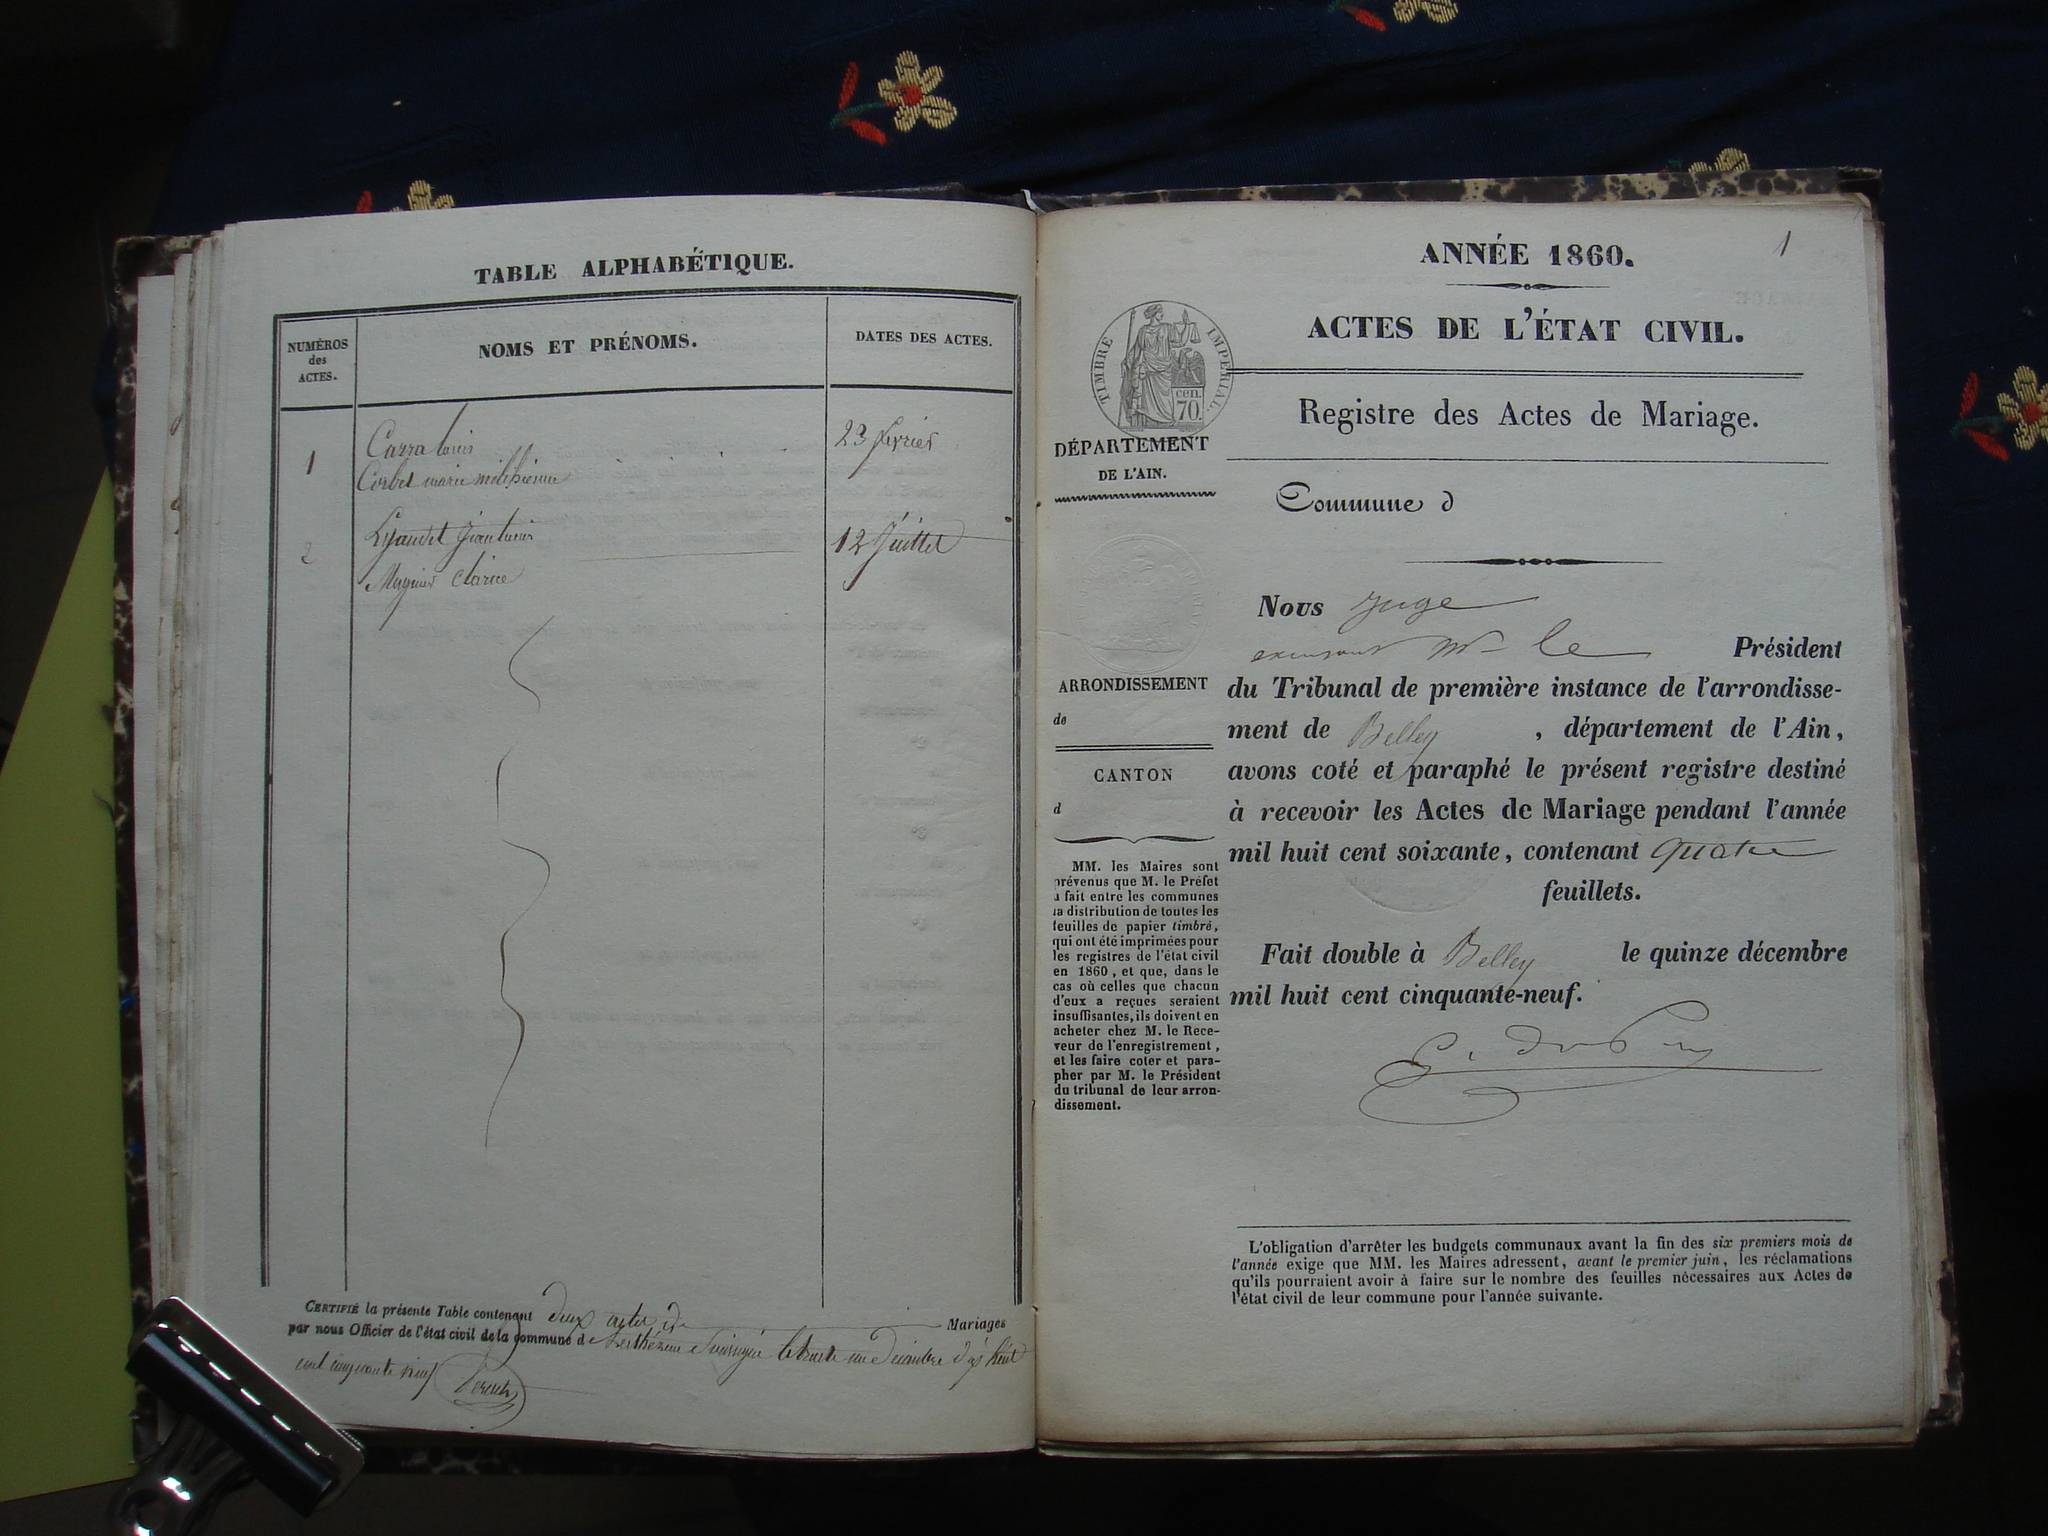 TABLE ALPHABÉTIQUE.
NUMÉROS
des
ACTES.
NOMS ET PRÉNOMS.
DATES DES ACTES.
1
Carra Louis
Corbet marie
23 février
2
Lyaudet Jean Louis
Clarice
12 Juillet
CERTIFIÉ la présente Table contenant deux actes de Mariages
par nous Officier de l'état civil de la commune de le trente un Décembre dix huit
cent cinquante neuf
1
ANNÉE 1860.
ACTES DE L'ÉTAT CIVIL.
Registre des Actes de Mariage.
TIMBRE IMPÉRIAL.
cen.
70.
DÉPARTEMENT
DE L'AIN.
Commune d
Nous Juge
Mr le Président
du Tribunal de première instance de l'arrondisse-
ment de Belley, département de l'Ain,
avons coté et paraphé le présent registre destiné
à recevoir les Actes de Mariage pendant l'année
mil huit cent soixante, contenant quatre
feuillets.
Fait double à Belley le quinze décembre
mil huit cent cinquante-neuf.
ARRONDISSEMENT
de
CANTON
d
MM. les Maires sont
prévenus que M. le Préfet
a fait entre les communes
la distribution de toutes les
feuilles de papier timbré,
qui ont été imprimées pour
les registres de l'état civil
en 1860, et que, dans le
cas où celles que chacun
d'eux a reçues seraient
insuffisantes, ils doivent en
acheter chez M. le Rece-
veur de l'enregistrement,
et les faire coter et para-
pher par M. le Président
du tribunal de leur arron-
dissement.
L'obligation d'arrêter les budgets communaux avant la fin des six premiers mois de
l'année exige que MM. les Maires adressent, avant le premier juin, les réclamations
qu'ils pourraient avoir à faire sur le nombre des feuilles nécessaires aux Actes de
l'état civil de leur commune pour l'année suivante.